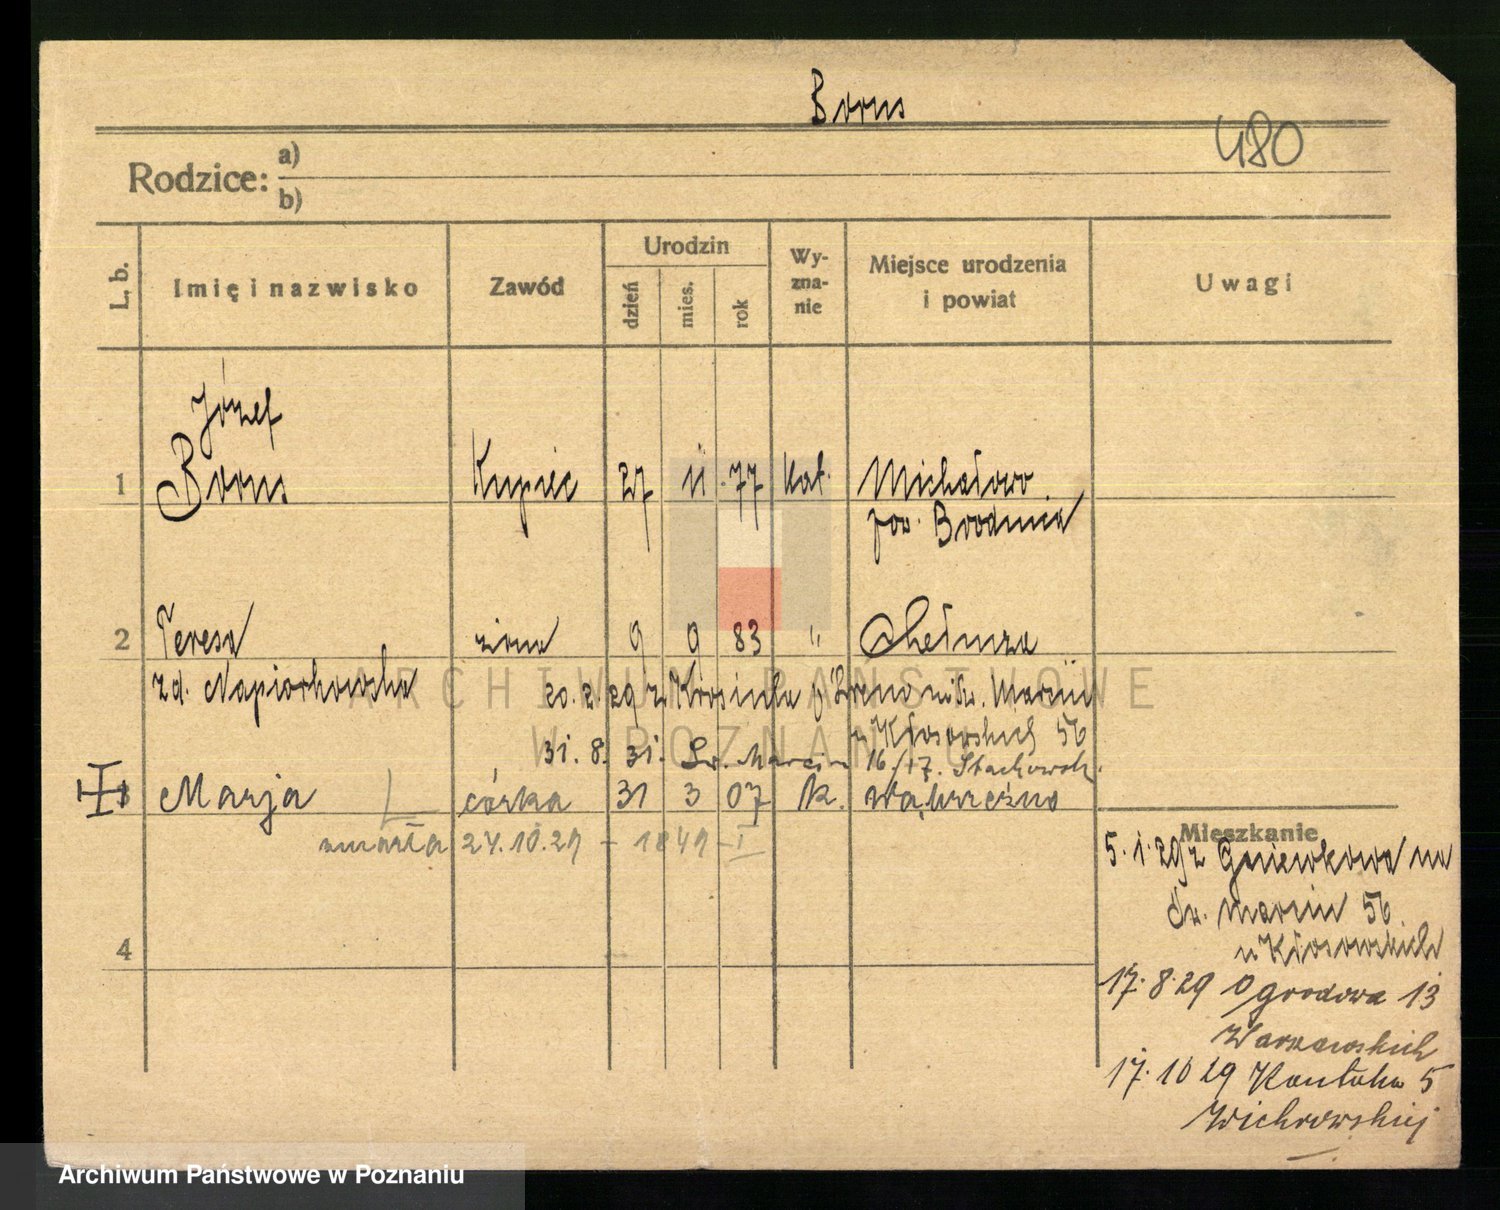 Borus
480
Rodzice: a)
b)
L. b.
Imię i nazwisko
Zawód
Urodzin
dzień
mies.
rok
Wy-
zna-
nie
Miejsce urodzenia
i powiat
Uwagi
Józef
1 Borus Kupiec 27 11 77 Kat. Michałowo
pow. Brodnica
2 Teresa żona 9 9 83 " Chełmża
zd. Napiorkowska 20. 2. 29 z
u Kłosowskich 56
31. 8. 31. Św. Marcin 16/17.
Marja córka 31 3 07 k. Wąbrzeźno
zmarła 24.10.29 - 1849 - I
4
Mieszkanie
5. 1. 29 z Gniewkowa na
Św. Marcin 56
u Kłosowskich
17. 8. 29 Ogrodowa 13
Warszawskich
17. 10 29 Kantaka 5
Wichrowskiej
ARCHIWUM PAŃSTWOWE
W POZNANIU
Archiwum Państwowe w Poznaniu